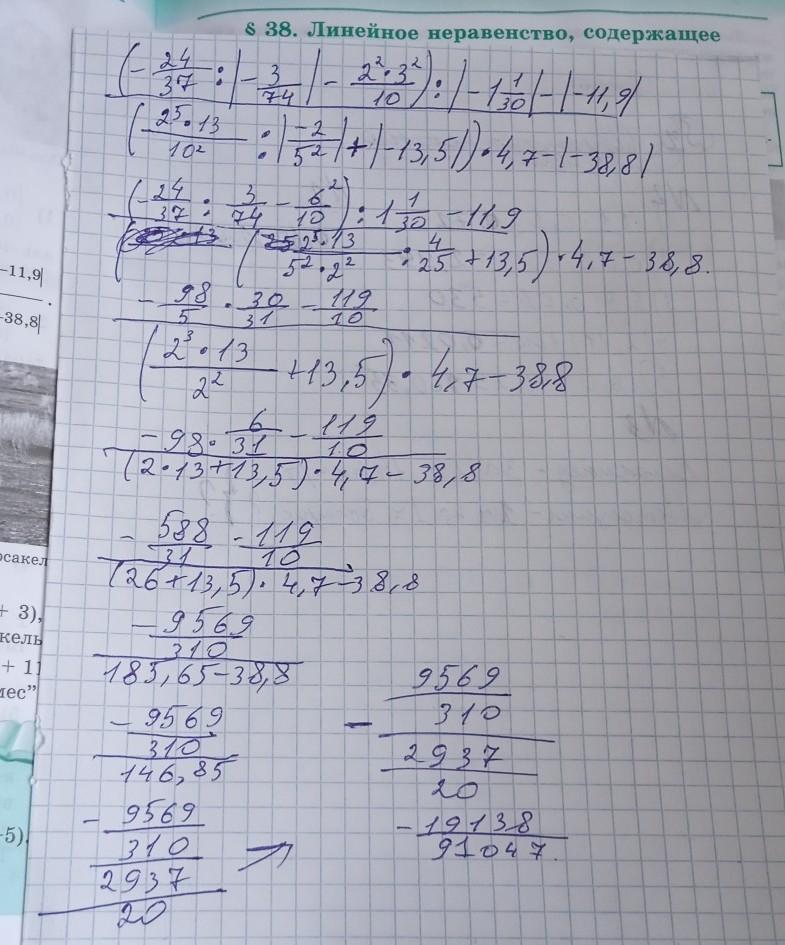 § 38. Линейное неравенство, содержащее
(-24/37 : |-3/74| - 2²·3²/10) : |-1 1/30| - |-11,9|
(2⁵·13/10² : |-2/5²| + |-13,5|)·4,7-|-38,8|
(-24/37 : 3/74 - 6²/10) : 1 1/30 - 11,9
(2⁵·13/5²·2² : 4/25 + 13,5)·4,7 - 38,8.
-98/5 · 30/31 - 119/10
(2³·13/2² + 13,5)·4,7-38,8
-98·6/31 - 119/10
(2·13+13,5)·4,7-38,8
-588/31 - 119/10
(26+13,5)·4,7-38,8
-9569/310
185,65-38,8
-9569/310
146,85
-9569
310
2937
20
→
9569
310
-
2937
20
-19138
91047.
-11,9|
.
-38,8|
осакел
+ 3),
кель
+ 1]
мес"
-5).